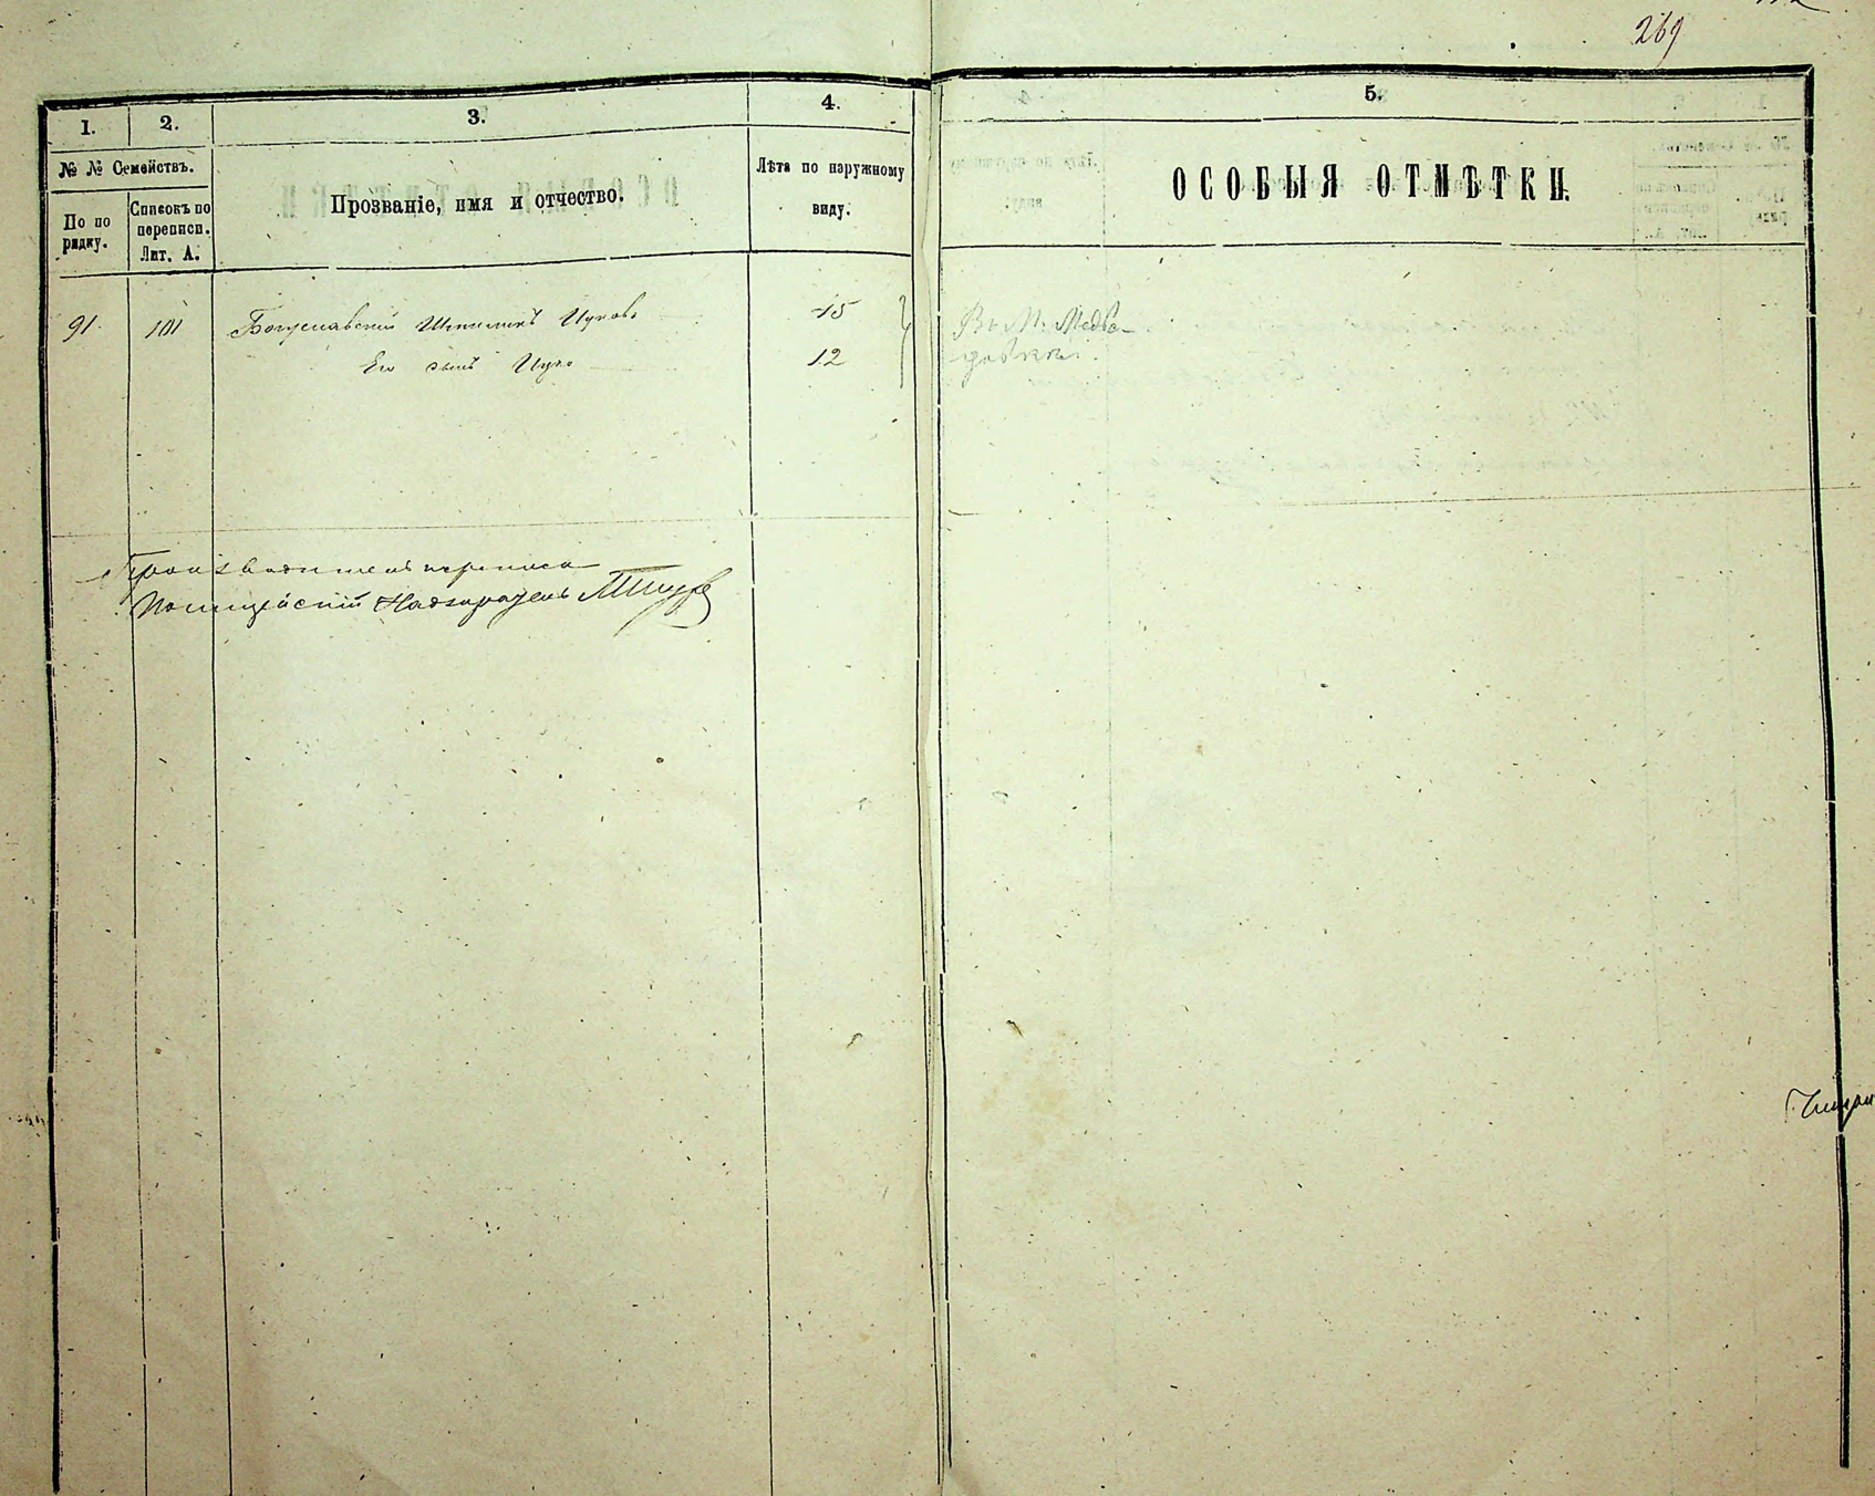 269
1.
2.
3.
4.
5.
№ № Семействъ.
По по
рядку.
Списокъ по
переписи.
Лит. А.
Прозваніе, имя и отчество.
Лѣта по наружному
виду.
ОСОБЫЯ ОТМѢТКИ.
91. 101 Богуславскій Ицковъ 45
Его сынъ Ицко 12
Въ М. Медвѣ-
довкѣ.
Производитель переписи
Полицейскій Надзиратель